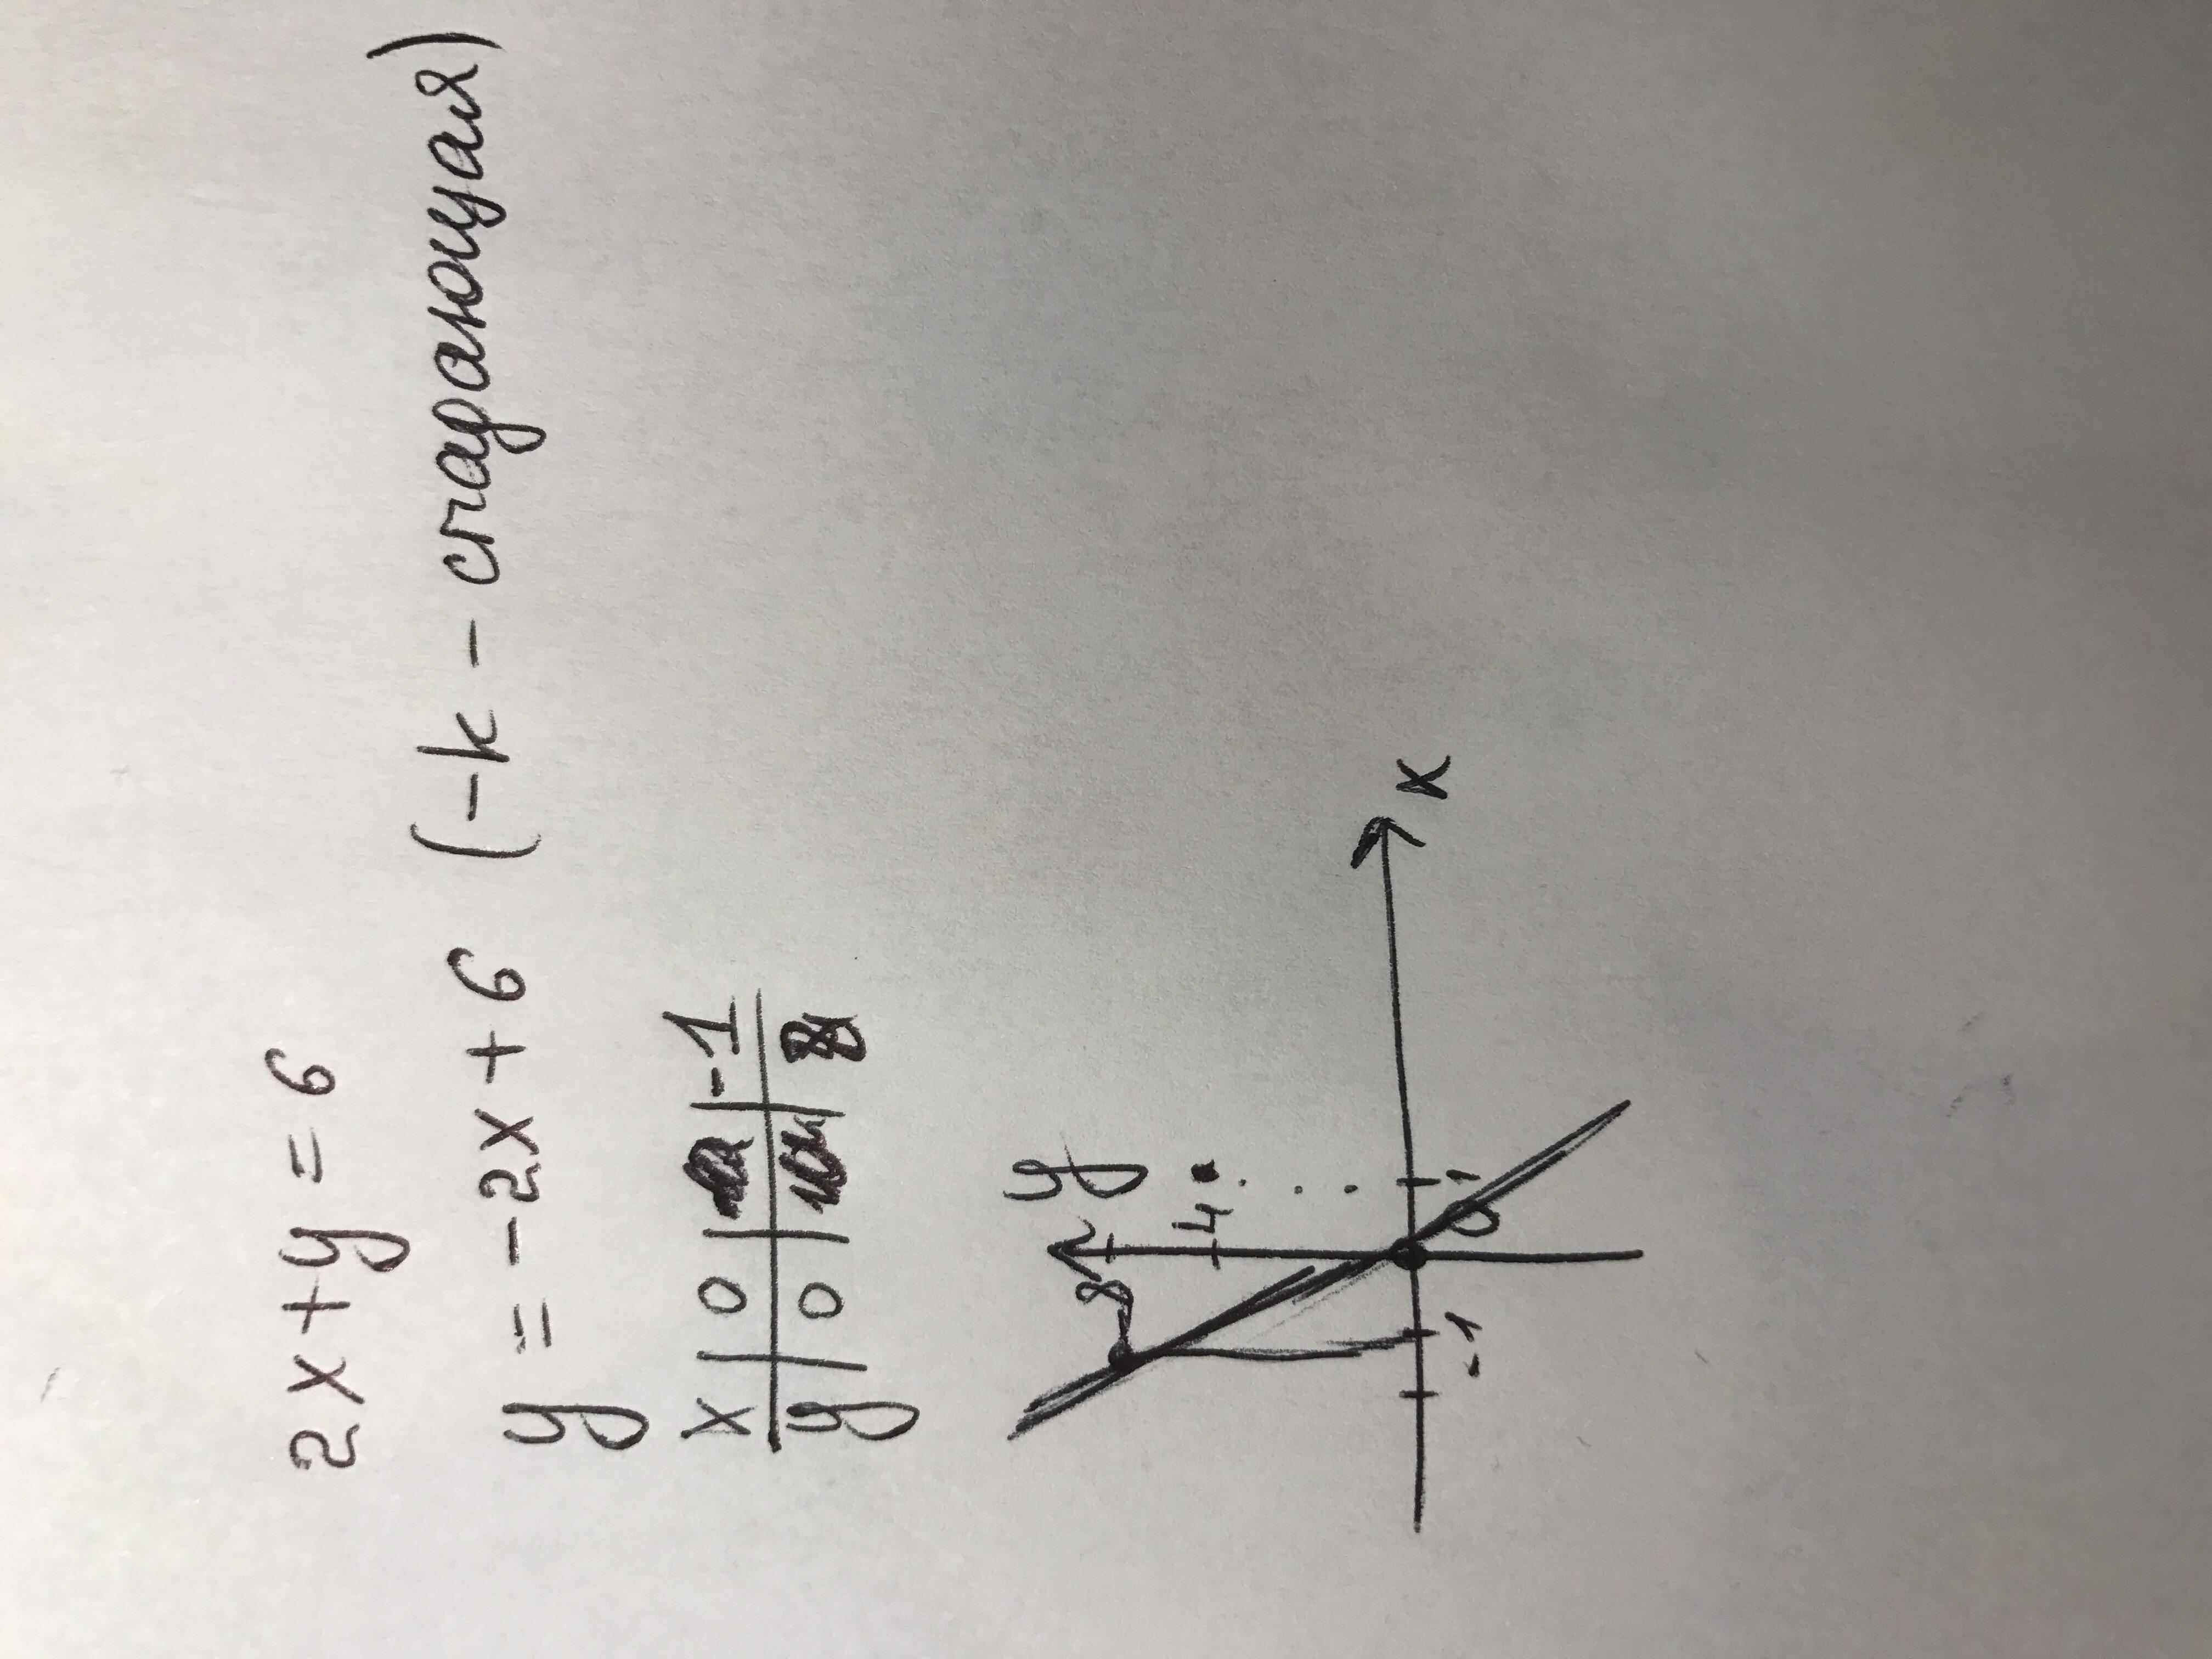 2x+y=6
y=-2x+6 (-k-спадающая)
x | 0 | | -1
y | 0 | | 8
y
8
4
x
-1 0 1